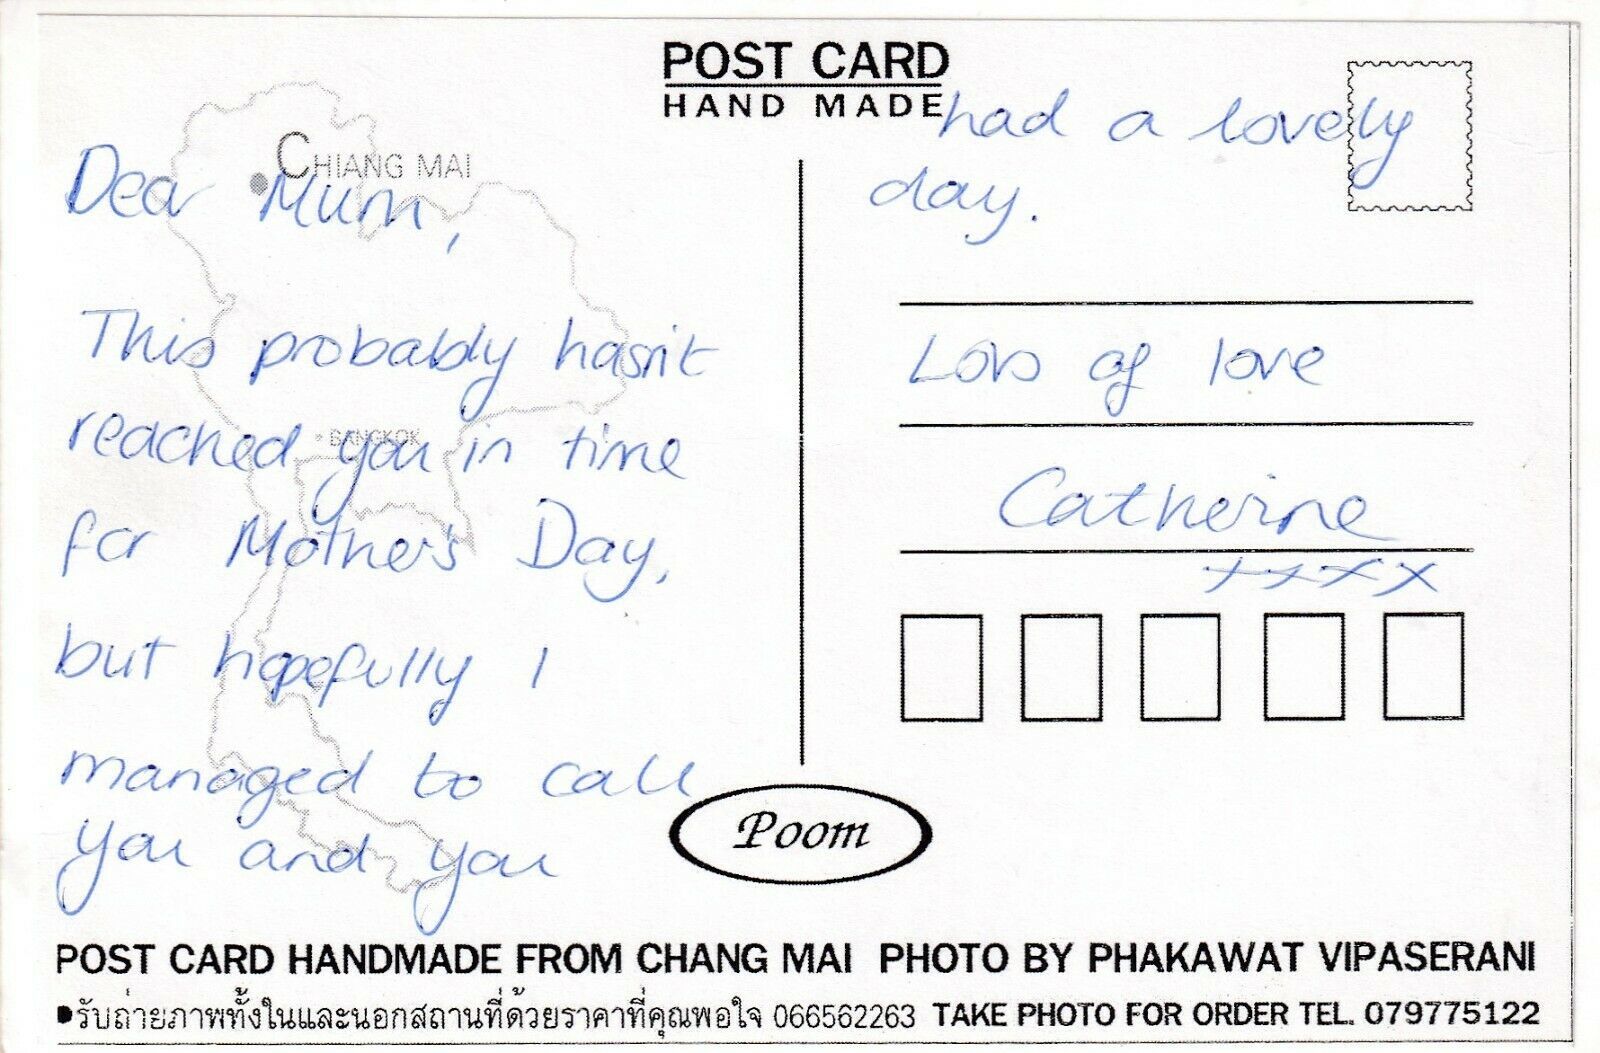 POST CARD
HAND MADE
CHIANG MAI
BANGKOK
Dear Mum,
This probably hasn't
reached you in time
for Mother's Day,
but hopefully I
managed to call
you and you
had a lovely
day.
Lots of love
Catherine
xxxx
Poom
POST CARD HANDMADE FROM CHANG MAI PHOTO BY PHAKAWAT VIPASERANI
•รับถ่ายภาพทั้งในและนอกสถานที่ด้วยราคาที่คุณพอใจ 066562263 TAKE PHOTO FOR ORDER TEL. 079775122